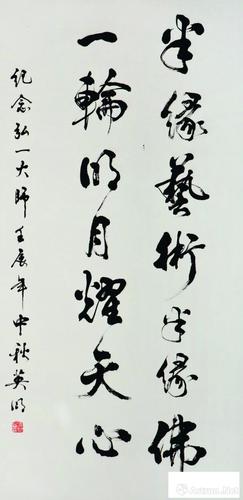 半缘藝術半缘佛
一輪明月耀天心
纪念弘一大師壬辰年中秋英明